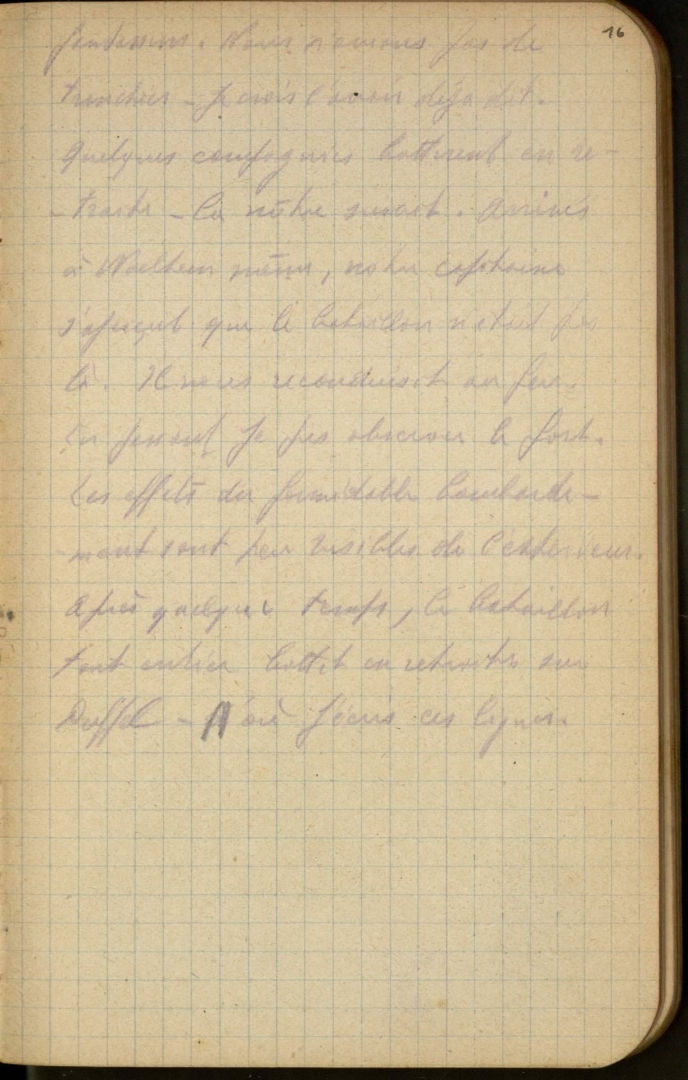 16
fantassins. Nous n'avons pas de
tranchées – Je crois l'avoir déjà dit.
Quelques compagnies battirent en re-
-traite – la nôtre suivit. Arrivés
à Waelhem même, notre capitaine
s'aperçut que le bataillon n'était pas
là. Il nous reconduisit au feu.
En passant je pus observer le fort.
Les effets du formidable bombarde-
-ment sont peu visibles de l'extérieur.
Après quelque temps, le bataillon
tout entier battit en retraite sur
Duffel – d'où j'écris ces lignes.